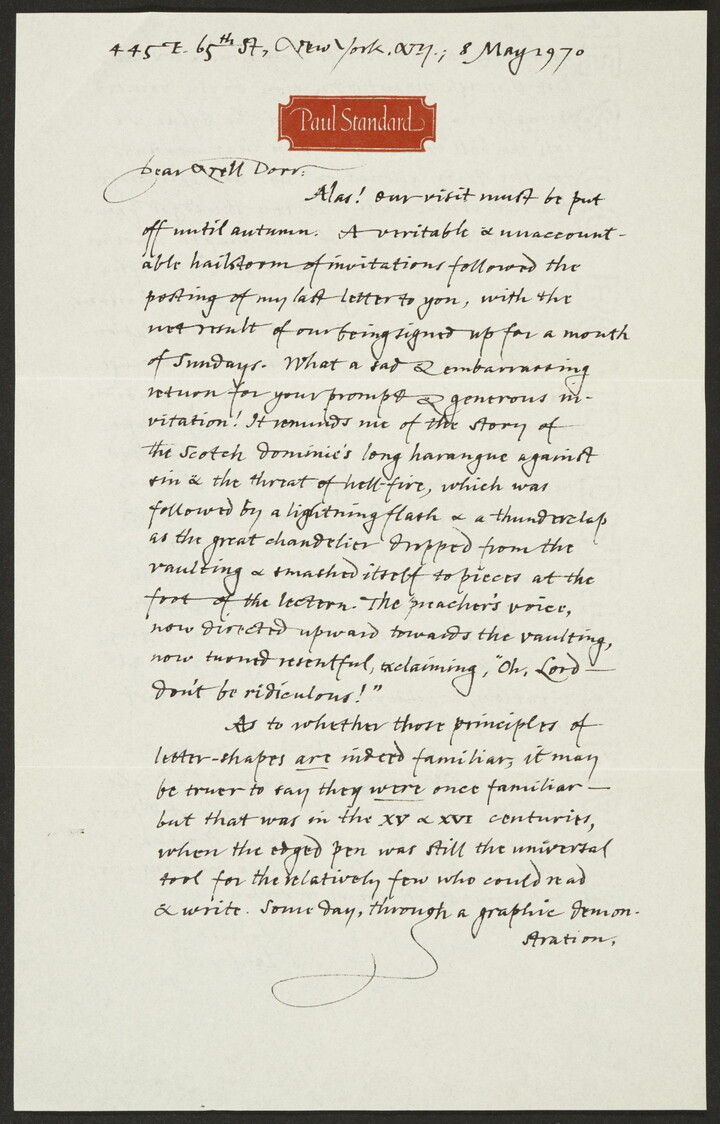 445 E. 65th St, New York, N.Y.; 8 May 1970
Paul Standard
Dear Nell Dorr:
Alas! Our visit must be put
off until autumn. A veritable & unaccount-
able hailstorm of invitations followed the
posting of my last letter to you, with the
net result of our being signed up for a month
of Sundays. What a sad & embarrassing
return for your prompt & generous in-
vitation! It reminds me of the story of
the Scotch dominie's long harangue against
sin & the threat of hell-fire, which was
followed by a lightning flash & a thunderclap
as the great chandelier dropped from the
vaulting & smashed itself to pieces at the
foot of the lectern. The preacher's voice,
now directed upward towards the vaulting,
now turned resentful, exclaiming, "Oh, Lord —
don't be ridiculous!"
As to whether those principles of
letter-shapes are indeed familiar, it may
be truer to say they were once familiar —
but that was in the XV & XVI centuries,
when the edged pen was still the universal
tool for the relatively few who could read
& write. Some day, through a graphic demon-
stration,